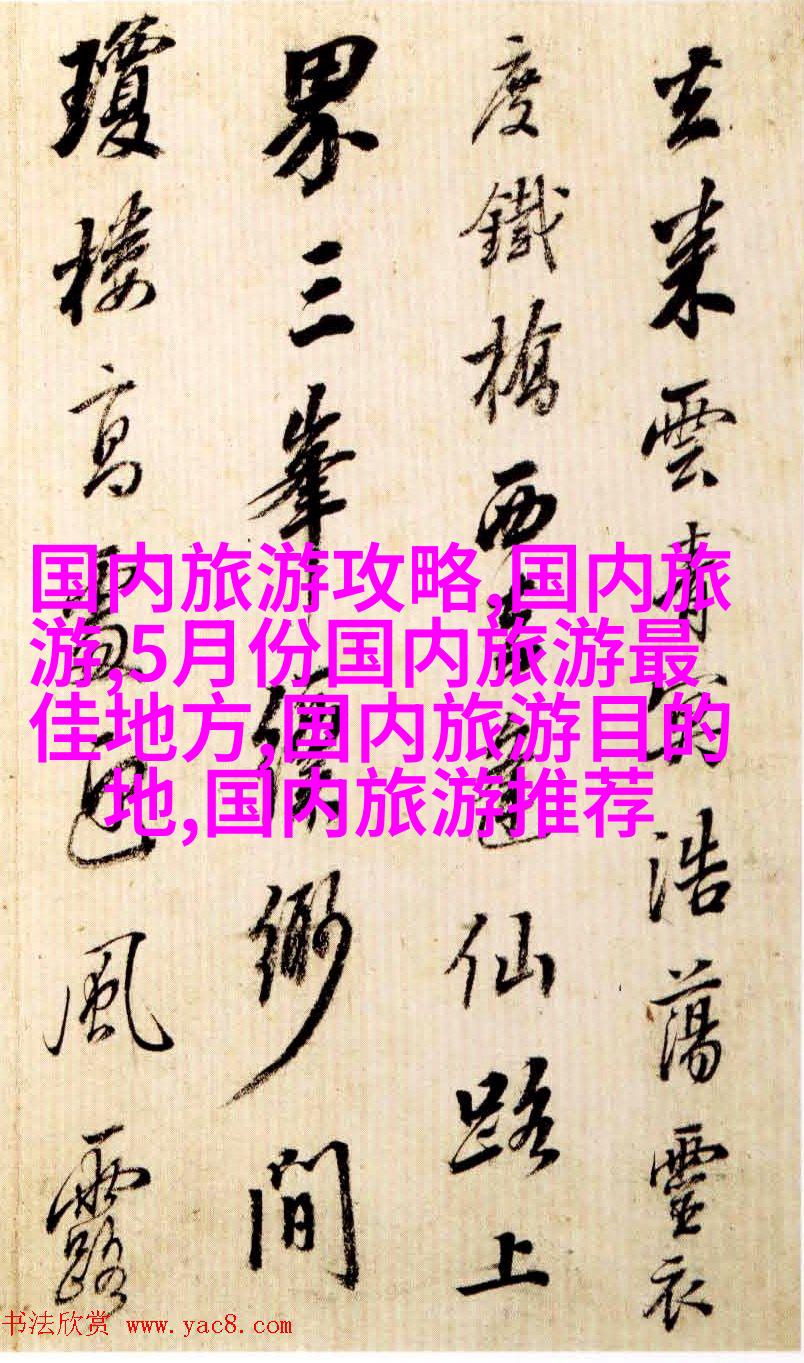 去来雲青宵浩蕩靈衣
度鐵橋西去蓬仙路上
界三峯縹緲間
瓊樓高處足風露
国内旅游攻略,国内旅
游,5月份国内旅游最
佳地方,国内旅游目的
地,国内旅游推荐
书法欣赏 www.yac8.com